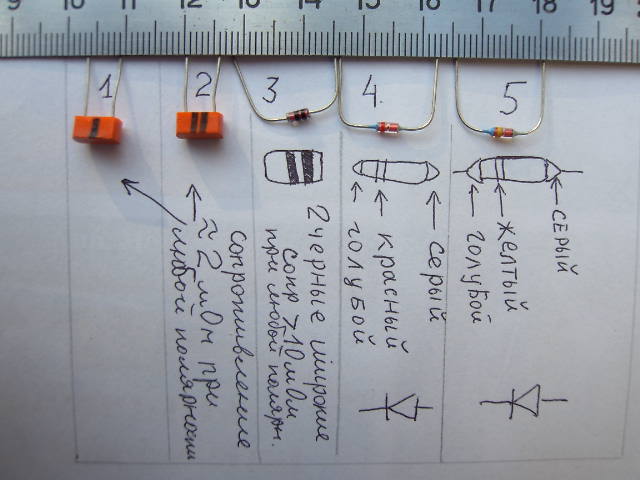 9 10 11 12 13 14 15 16 17 18 19
1 2 3 4. 5
сопротивление
≈ 2 мОм при
любой полярности
2 черные широкие
сопр >10 мОм
при любой полярн.
голубой
красный
серый
голубой
желтый
серый